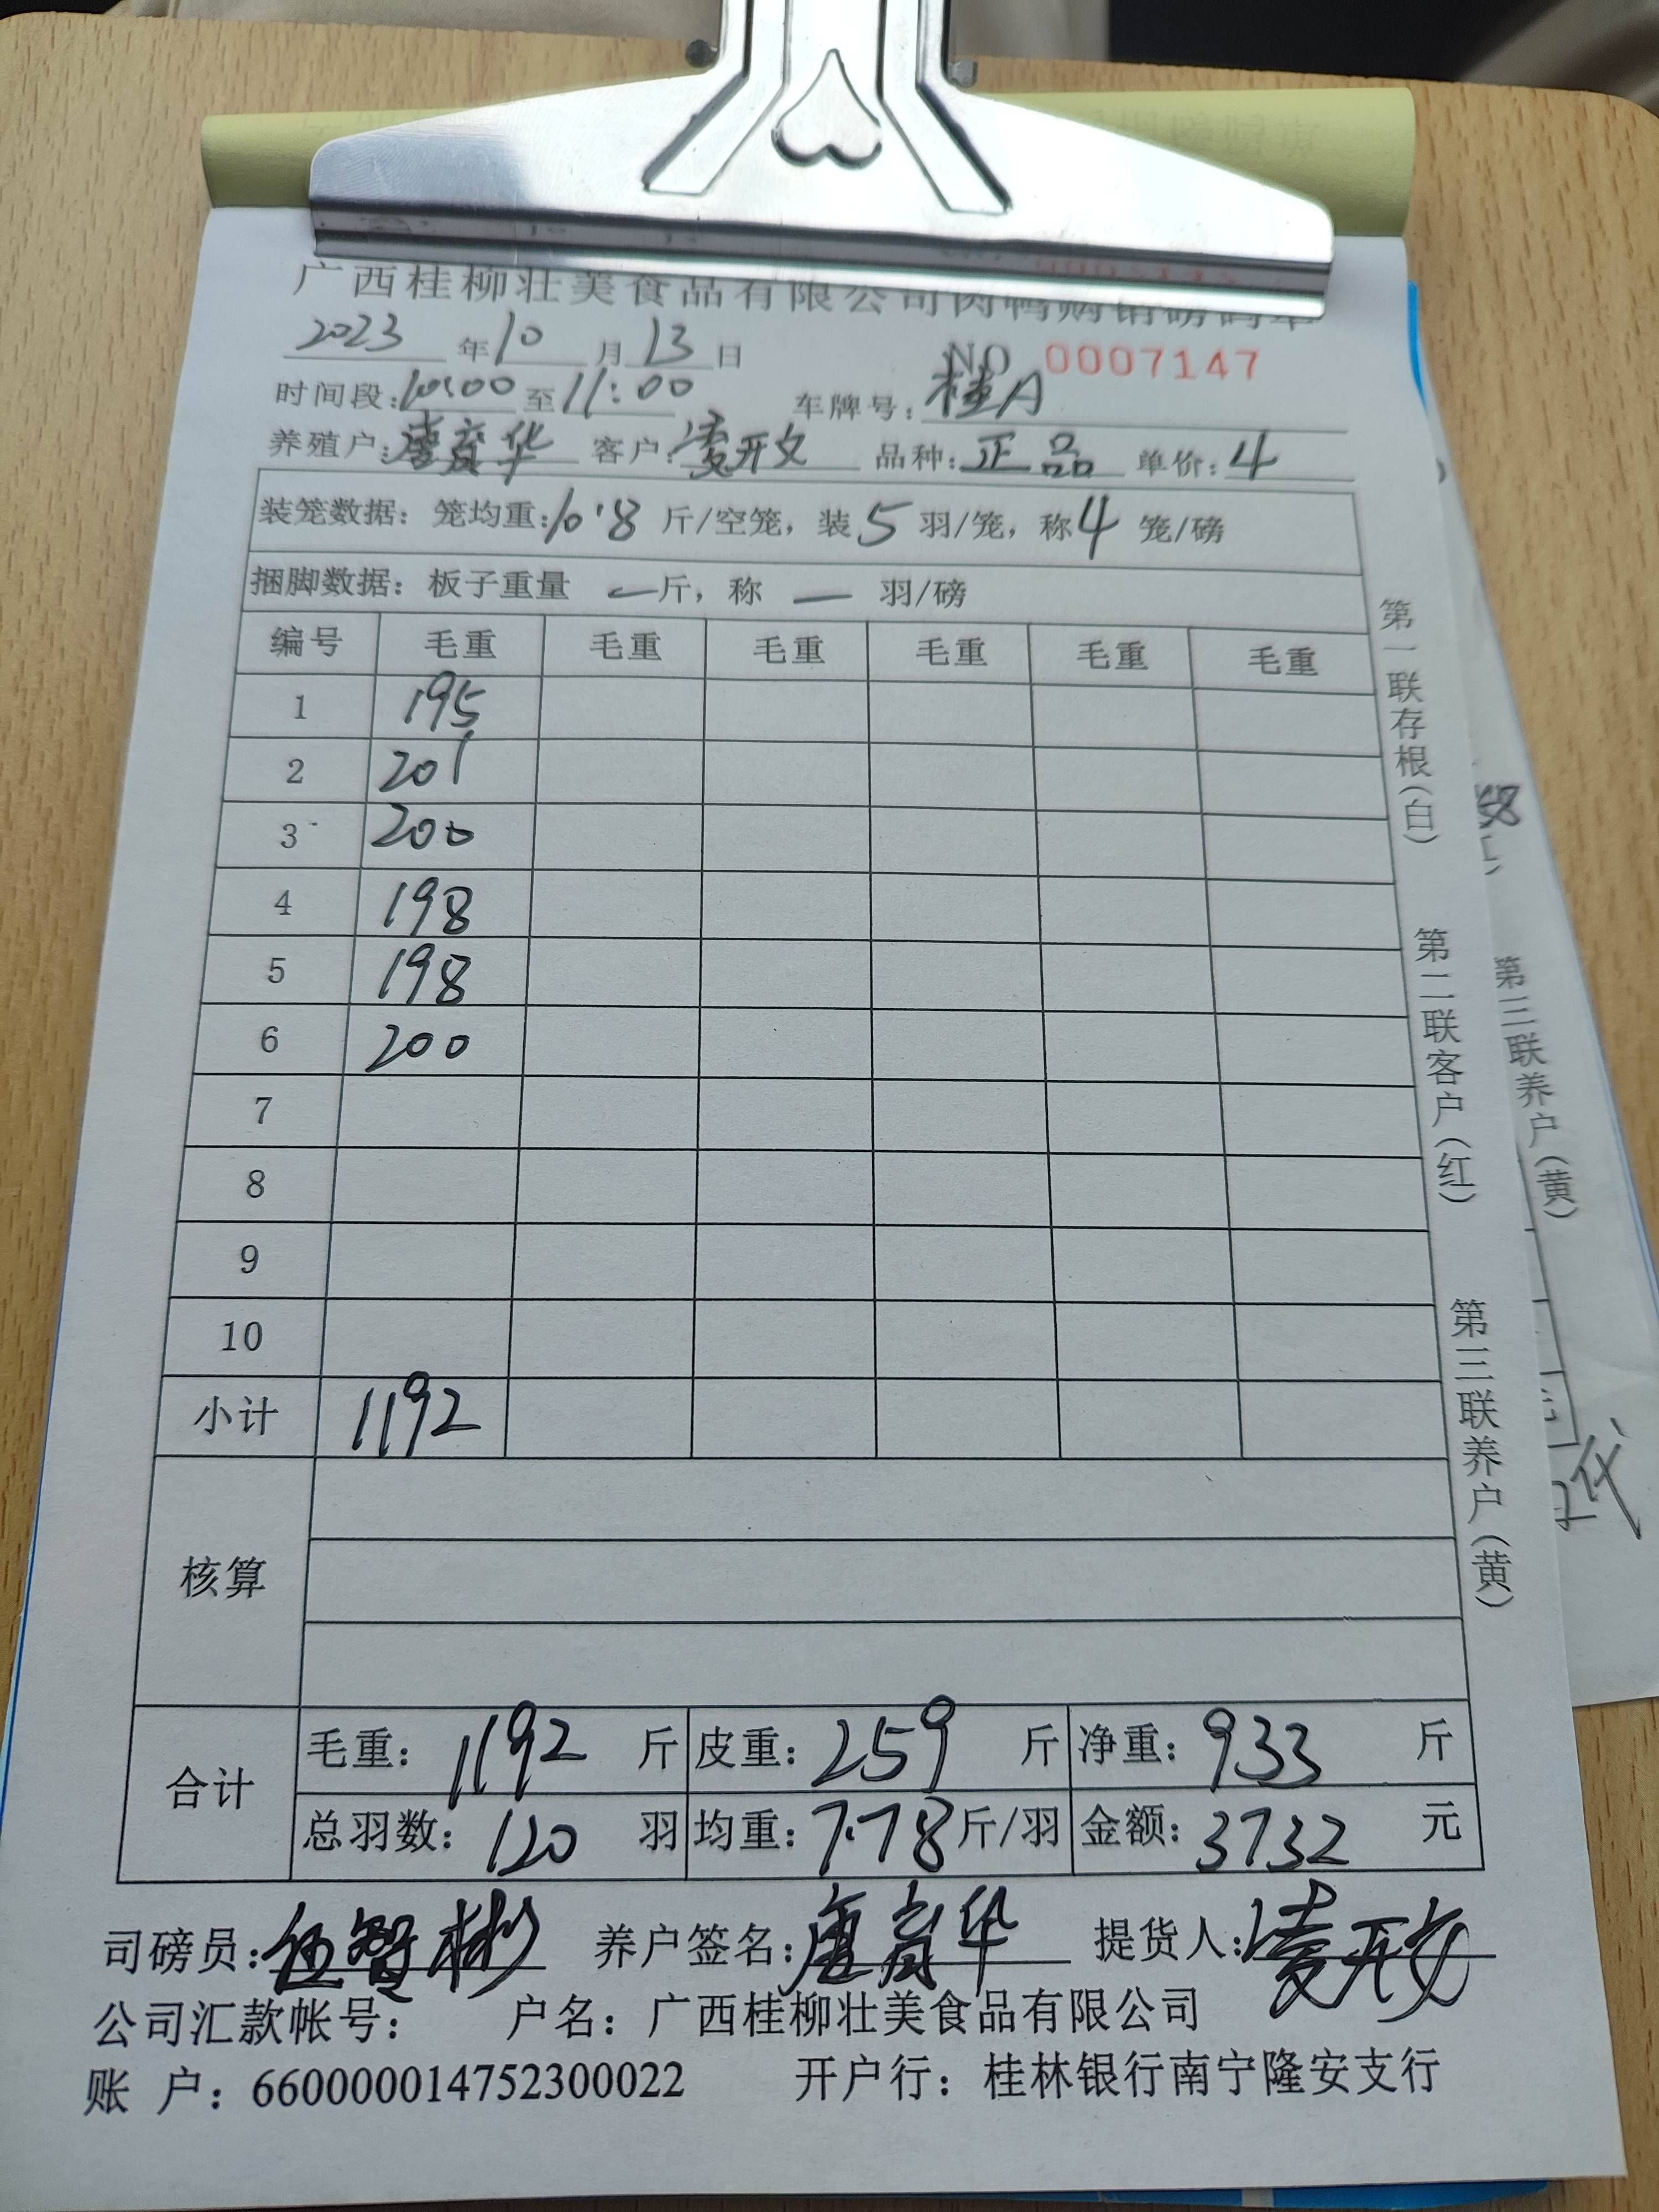 广西桂柳壮美食品有限公司肉鸭购销磅码单
2023 年 10 月 13 日 NO 0007147
时间段:10:00 至 11:00 车牌号:桂A
养殖户:唐育华 客户:凌开文 品种:正品 单价:4
装笼数据: 笼均重:10.8 斤/空笼, 装 5 羽/笼, 称 4 笼/磅
捆脚数据: 板子重量 — 斤, 称 — 羽/磅
编号 毛重 毛重 毛重 毛重 毛重 毛重
1 195
2 201
3 200
4 198
5 198
6 200
7
8
9
10
小计 1192
核算
合计
毛重: 1192 斤 皮重: 259 斤 净重: 933 斤
总羽数: 120 羽 均重: 7.78 斤/羽 金额: 3732 元
司磅员:伍智彬 养户签名:唐育华 提货人:凌开文
公司汇款帐号: 户名:广西桂柳壮美食品有限公司
账 户:660000014752300022 开户行:桂林银行南宁隆安支行
第一联存根(白)
第二联客户(红)
第三联养户(黄)
第三联养户(黄)